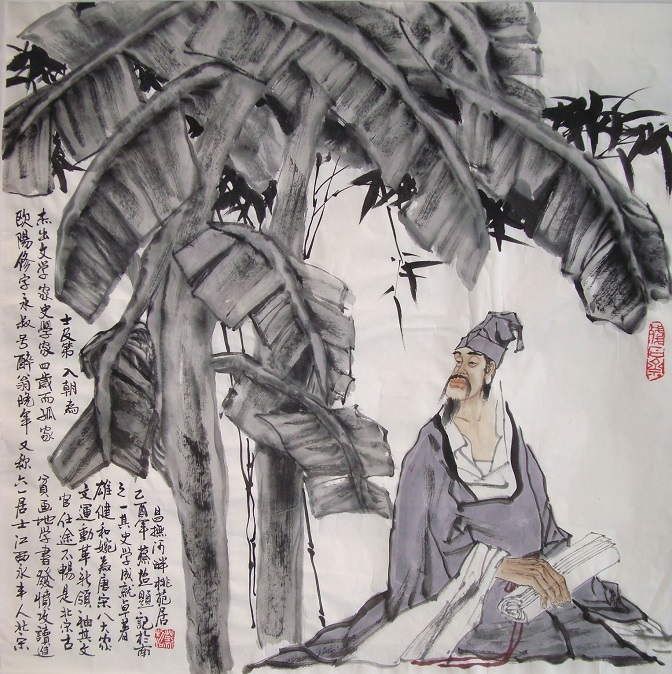 歐陽修字永叔号醉翁晚年又称六一居士江西永丰人北宋
杰出文学家史学家四歲而孤家貧画地学書發憤攻讀進
士及第入朝为
官仕途不暢是北宋古
文運動革新領袖其文
雄健和婉為唐宋八大家
之一其史学成就卓著
乙酉年蔡益照記於南
昌撫河畔桃苑居